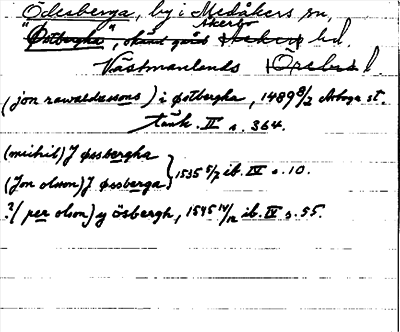 Ödesberga, by i Medåkers sn,
"Østbergha", skånd gård Askers hd. Åkerbo
Västmanlands Örebro l.
(jon rawaldssons) i østbergha, 1489 8/2 Arboga st.
tänk. II s. 364.
(michil) J øssbergha
(Jon olson) J øssberga } 1535 5/7 ib. IV s. 10.
?/ (per olson) y ösbergh, 1545 14/12 ib. IV s. 55.